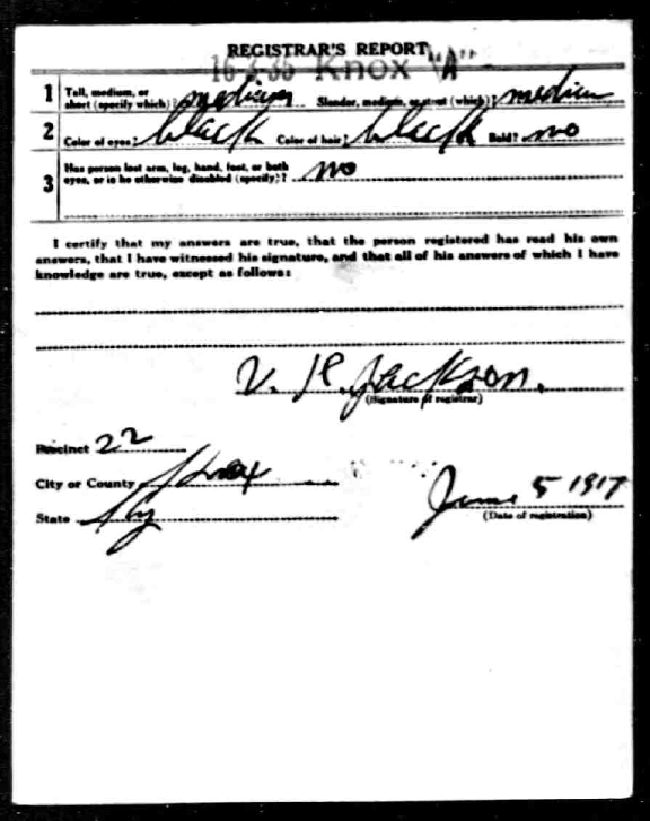 REGISTRAR'S REPORT
16-3-35 Knox "A"
1 Tall, medium, or short (specify which)? medium Slender, medium, or stout (which)? medium
2 Color of eyes? black Color of hair? black Bald? no
3 Has person lost arm, leg, hand, foot, or both
eyes, or is he otherwise disabled (specify)? no
I certify that my answers are true, that the person registered has read his own
answers, that I have witnessed his signature, and that all of his answers of which I have
knowledge are true, except as follows:
V. H. Jackson.
(Signature of registrar)
Precinct 22
City or County Knox
State Ky
June 5 1917
(Date of registration)